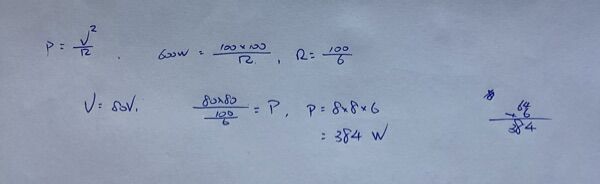 P = V²/R . 600W = 100×100/R . , R = 100/6
V = 80V. 80×80/(100/6) = P, P = 8×8×6
= 384 W
64
× 6
384